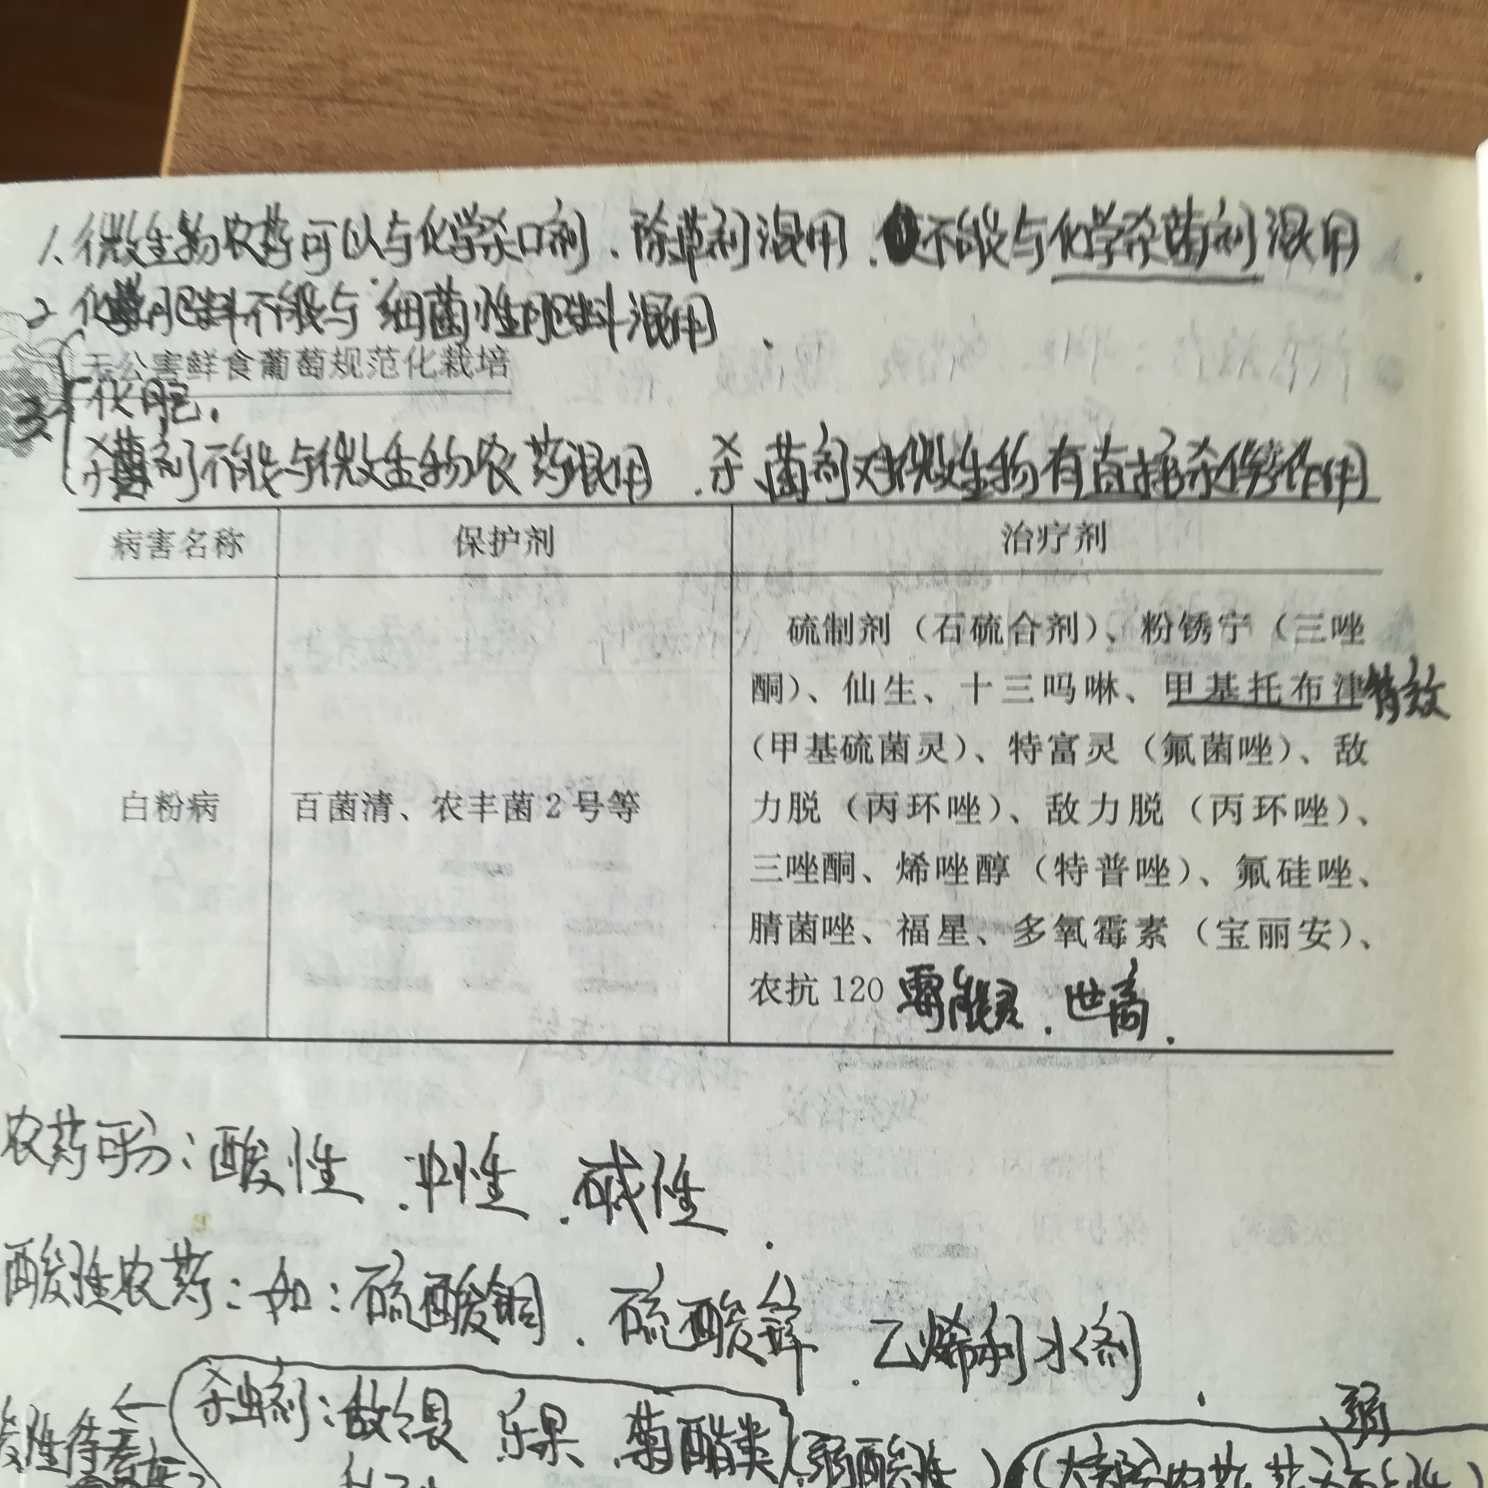 1、微生物农药可以与化学杀口剂、除草剂混用、但不能与化学杀菌剂混用.
2 化学肥料不能与细菌性肥料混用.
无公害鲜食葡萄规范化栽培
3 化肥.
杀菌剂不能与微生物农药混用.杀菌剂对微生物有直接杀伤作用
病害名称 保护剂 治疗剂
硫制剂（石硫合剂）、粉锈宁（三唑
酮）、仙生、十三吗啉、甲基托布津特效
（甲基硫菌灵）、特富灵（氟菌唑）、敌
白粉病 百菌清、农丰菌2号等 力脱（丙环唑）、敌力脱（丙环唑）、
三唑酮、烯唑醇（特普唑）、氟硅唑、
腈菌唑、福星、多氧霉素（宝丽安）、
农抗120 霉能灵.世高.
农药可分:酸性.中性.碱性.
酸性农药:如:硫酸铜.硫酸锌.乙烯利水剂.
弱
杀虫剂:敌畏 乐果.菊酯类(弱酸性)(大部分农药